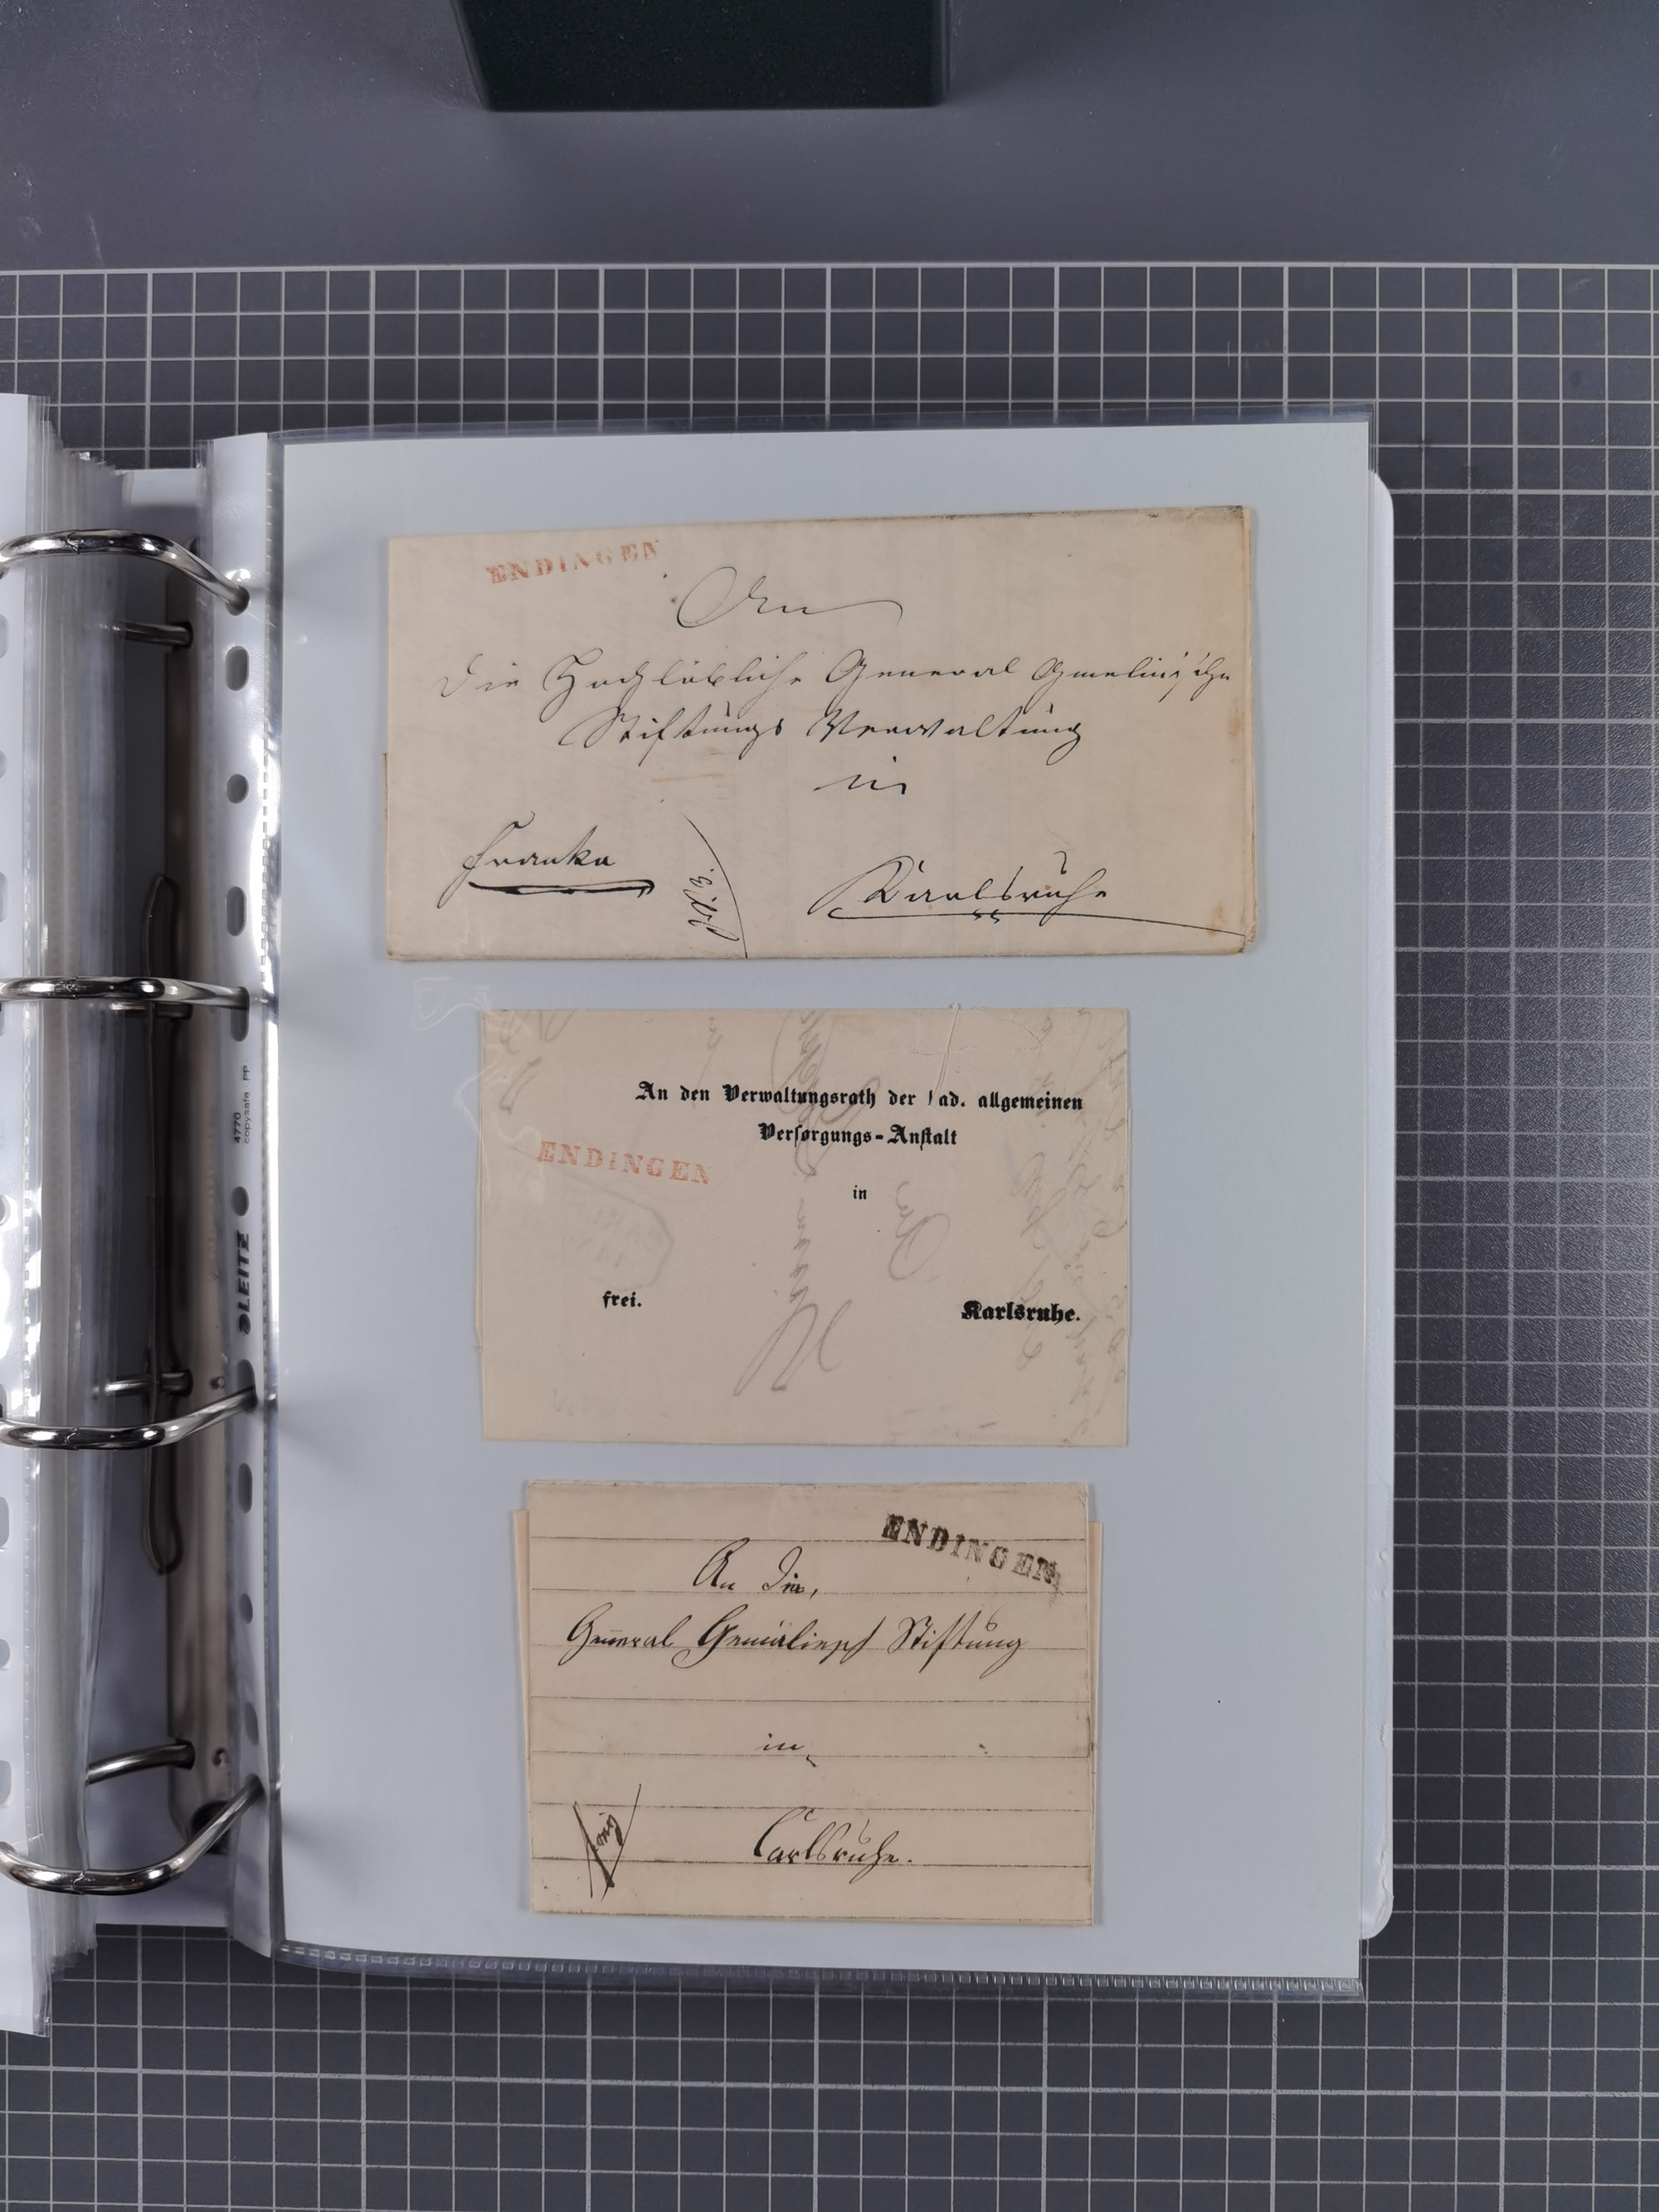 ENDINGEN
An
die Hochlöbliche General Gmelin'sche
Stiftungs Verwaltung
in
Franko
Karlsruhe
An den Verwaltungsrath der ad. allgemeinen
Versorgungs-Anstalt
ENDINGEN
in
frei.
Karlsruhe.
ENDINGEN
An Die,
General Stiftung
in
Carlsruhe.
4770
copysafe PP
LEITZ